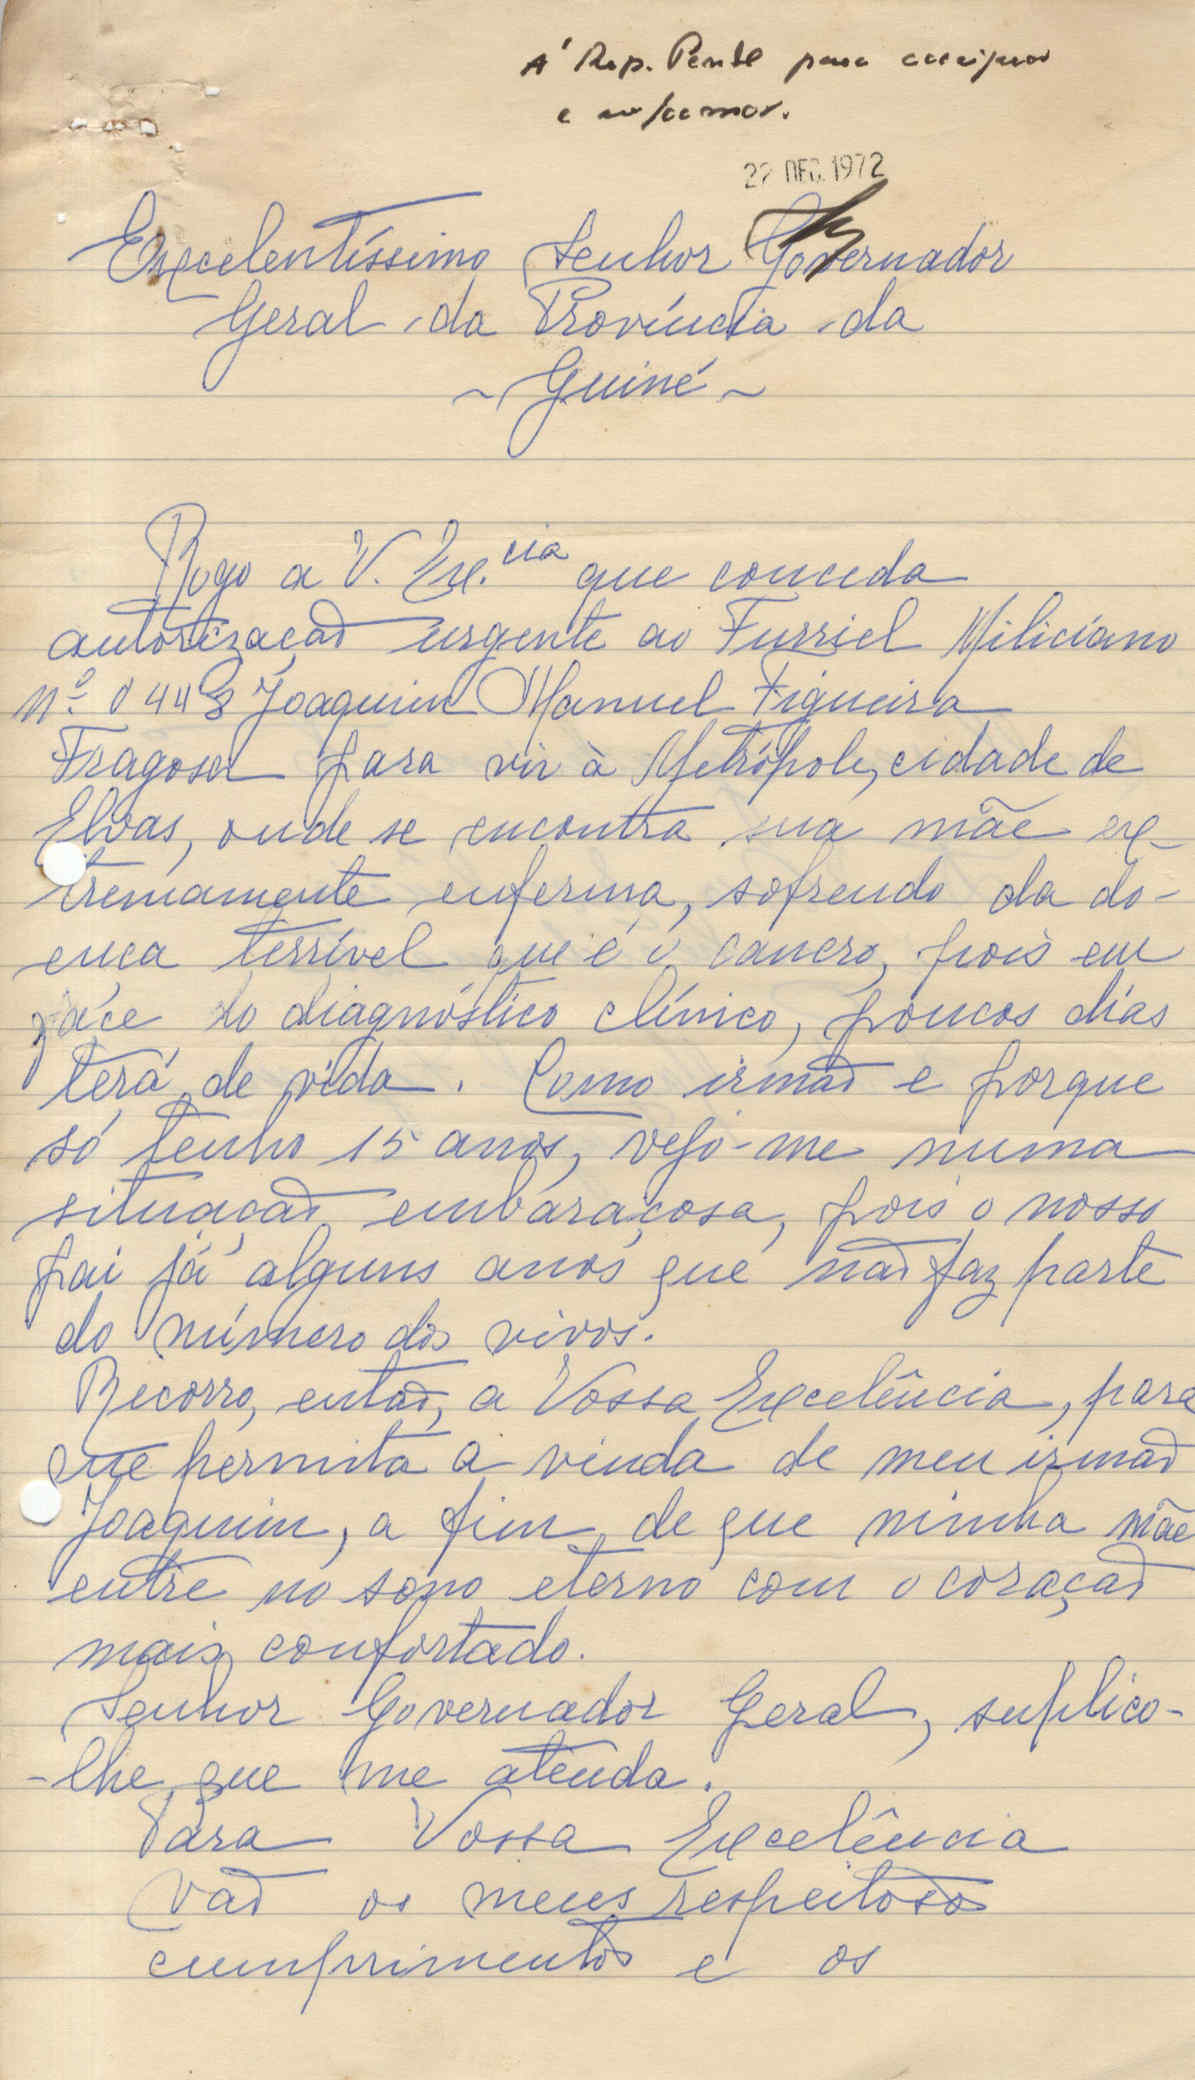 À Rep. Pente para
e informar.
22 DEZ. 1972
Excelentíssimo Senhor Governador
Geral da Província da
~ Guiné ~
Rogo a V. Ex.cia que conceda
autorização urgente ao Furriel Miliciano
Nº 0448 Joaquim Manuel Figueira
Fragoso para vir à Metrópole, cidade de
Elvas, onde se encontra sua mãe ex-
tremamente enferma, sofrendo da do-
ença terrível que é o cancro, pois em
face do diagnóstico clínico, poucos dias
terá de vida. Como irmão e porque
só tenho 15 anos, vejo-me numa
situação embaraçosa, pois o nosso
pai já alguns anos que não faz parte
do número dos vivos.
Recorro, então, a Vossa Excelência, para
que permita a vinda de meu irmão
Joaquim, a fim de que minha mãe
entre no sono eterno com o coração
mais confortado.
Senhor Governador Geral, suplico-
-lhe que me atenda.
Para Vossa Excelência
vão os meus respeitosos
cumprimentos e os